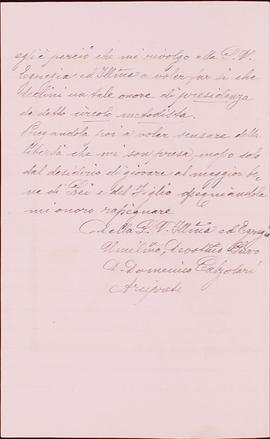 egli è perciò che mi rivolgo alla S. V.
Egregia ed Ill͞ma a voler far sì che
declini un tale onore di presidenza
da detto circolo metodista.
Pregandola poi a voler scusare della
libertà che mi son presa, mosso solo
dal desiderio di giovare al maggior be
ne di Lei e del Figlio ossequiandola
mi onoro rassegnare
Della S. V. Ill͞ma ed Egregia
Umil͞mo Devot͞mo Servo
D. Domenico Calzolari
Arciprete